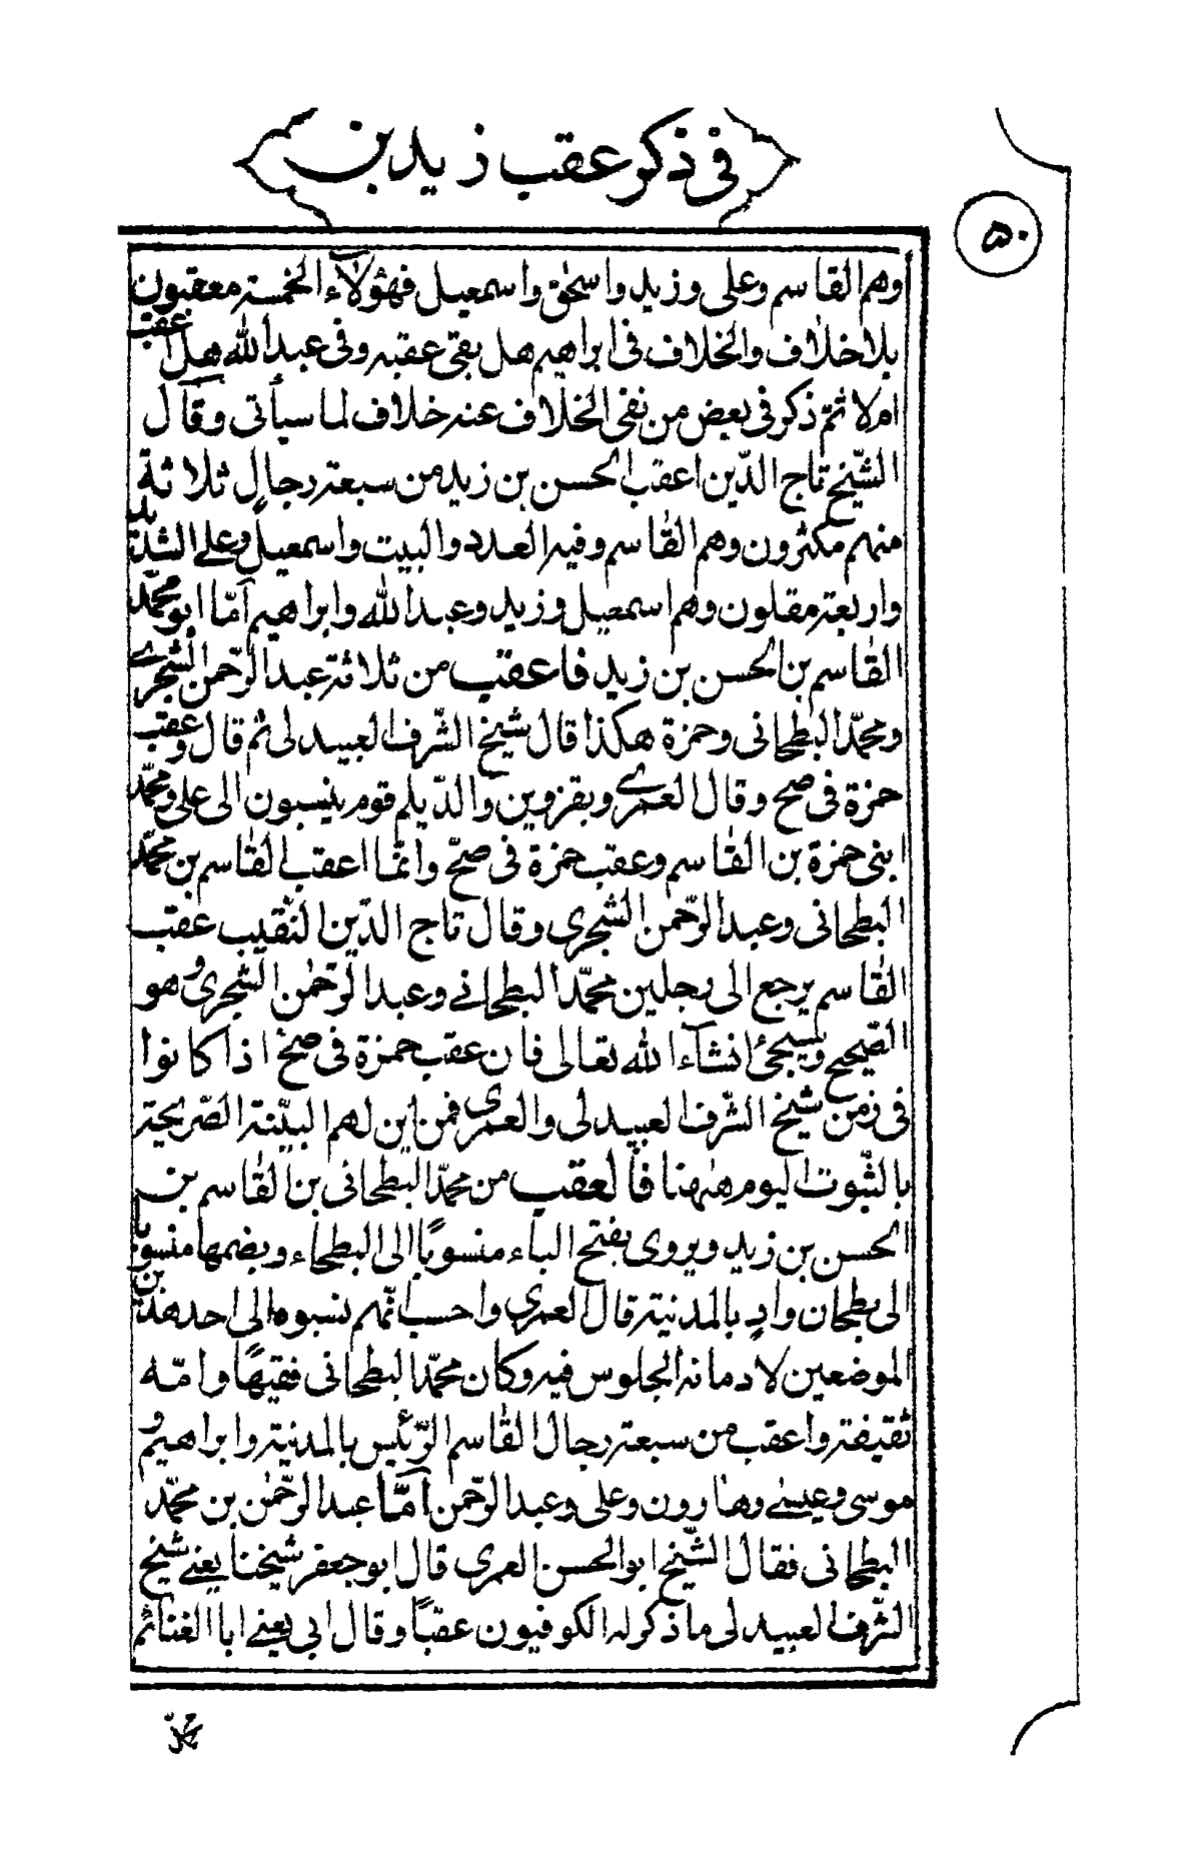 فى ذكر عقب زيد بن
٥٠
وهم القاسم وعلى وزيد واسحٰق واسمعيل فهؤلآء الخمسة معقبون
بلا خلاف والخلاف فى ابراهيم هل بقى عقبه وفى عبد الله هل اعقب
ام لا ثم ذكر فى بعض من نفى الخلاف عنه خلاف لما سيأتى وقال
الشّيخ تاج الدّين اعقب الحسن بن زيد من سبعة رجالٍ ثلاثة
منهم مكثرون وهم القاسم وفيه العدد والبيت واسمعيل وعلى الشديد
واربعة مقلون وهم اسمعيل وزيد وعبد الله وابراهيم امّا ابو محمّد
القاسم بن الحسن بن زيد فاعقب من ثلاثة عبد الرّحمن الشجرى
ومحمّد البطحانى وحمزة هكذا قال شيخ الشّرف العبيدلى ثم قال وعقب
حمزة فى صح وقال العمرى وبقزوين والدّيلم قوم ينسبون الى على ومحمّد
ابنى حمزة بن القاسم وعقب حمزة فى صحّ وانّما اعقب القاسم بن محمّد
البطحانى وعبد الرّحمن الشجرى وقال تاج الدّين النّقيب عقب
القاسم يرجع الى رجلين محمّد البطحانى وعبد الرّحمٰن الشجرى وهو
الصّحيح وسيجئ انشآء الله تعالى فان عقب حمزة فى صحّ اذا كانوا
فى زمن شيخ الشّرف العبيدلى والعمرى فمن اين لهم البيّنة الصّريحة
بالثّبوت اليوم هٰهنا فالعقب من محمّد البطحانى بن القاسم بن
الحسن بن زيد ويروى بفتح الباء منسوبًا الى البطحاء وبضمها منسوبا
الى بطحان وادٍ بالمدنية قال العمرى واحسب انّهم نسبوه الى احد هذين
الموضعين لادمانه الجلوس فيه وكان محمّد البطحانى فقيهًا وامّه
ثقيفة واعقب من سبعة رجال القاسم الرّئيس بالمدنية وابراهيم و
موسى وعيسى وهارون وعلى وعبد الرّحمن امّا عبد الرّحمٰن بن محمّد
البطحانى فقال الشّيخ ابو الحسن العمرى قال ابو جعفر شيخنا يعنى شيخ
الشّرف العبيدلى ما ذكر له الكوفيون عقبًا وقال ابى يعنى ابا الغنائم
محمّد